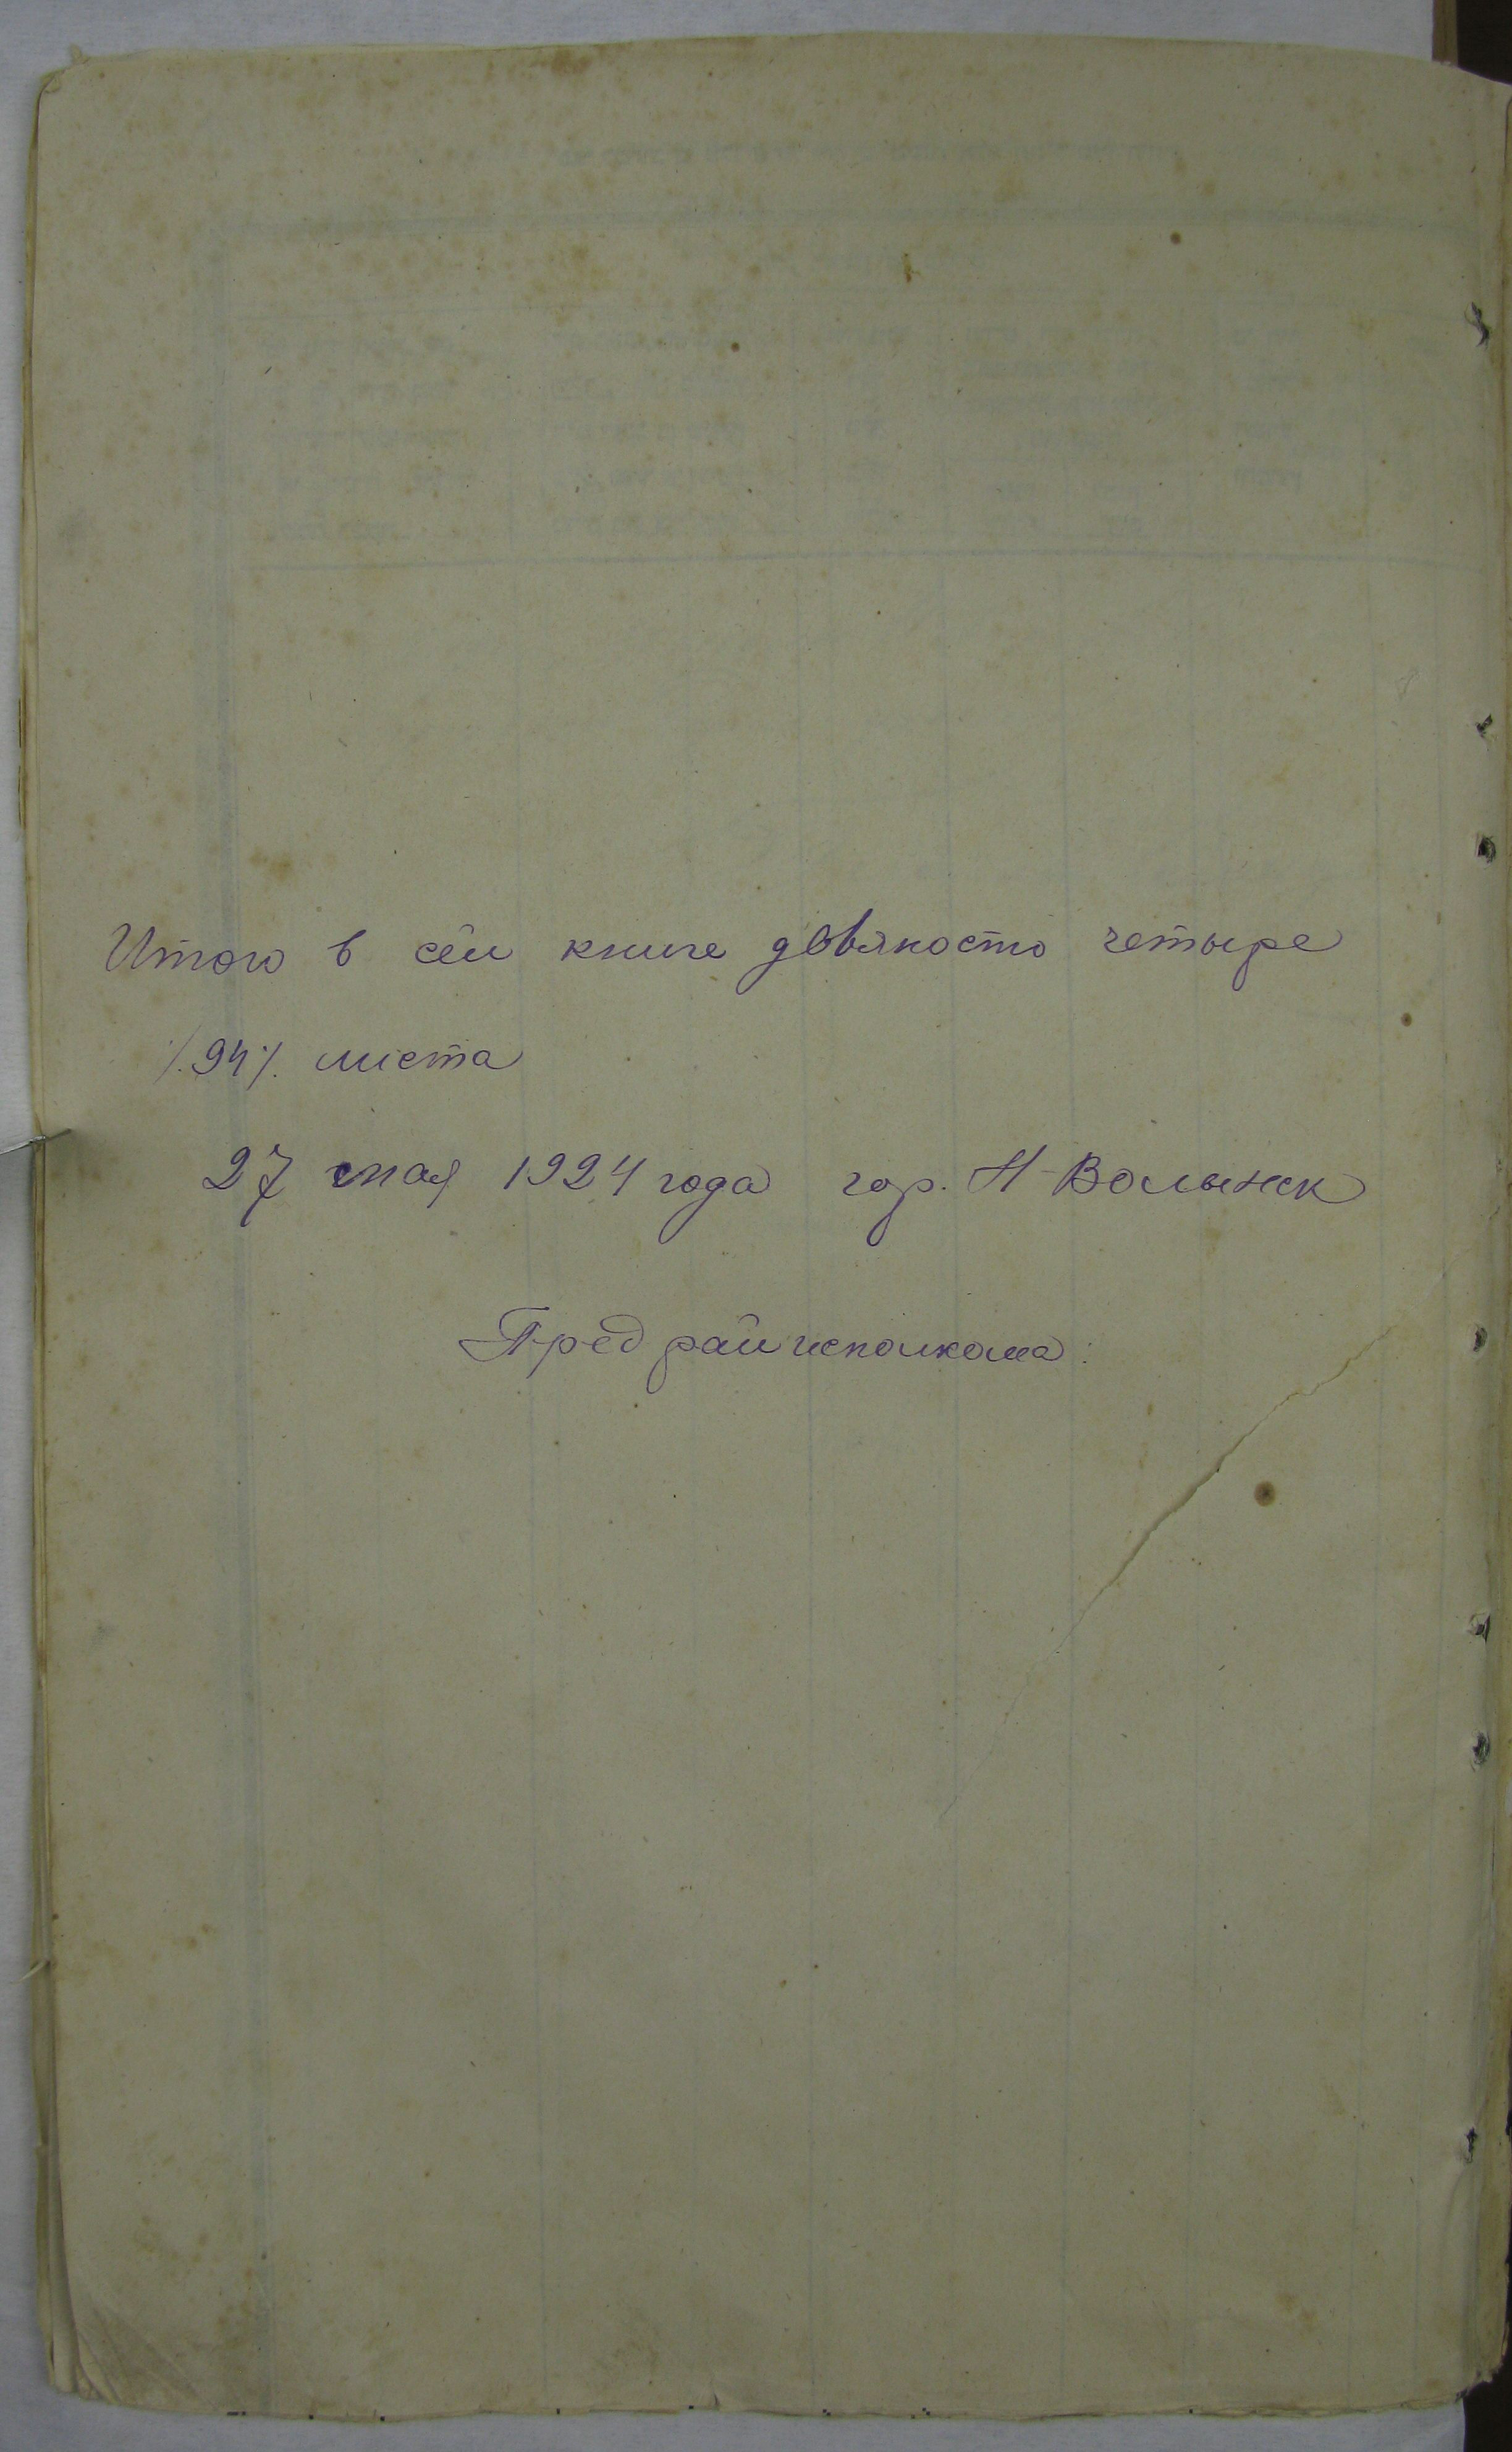 Итого в сей книге девяносто четыре
/.94/. листа
27 мая 1924 года гор. Н-Волынск
Пред райисполкома: